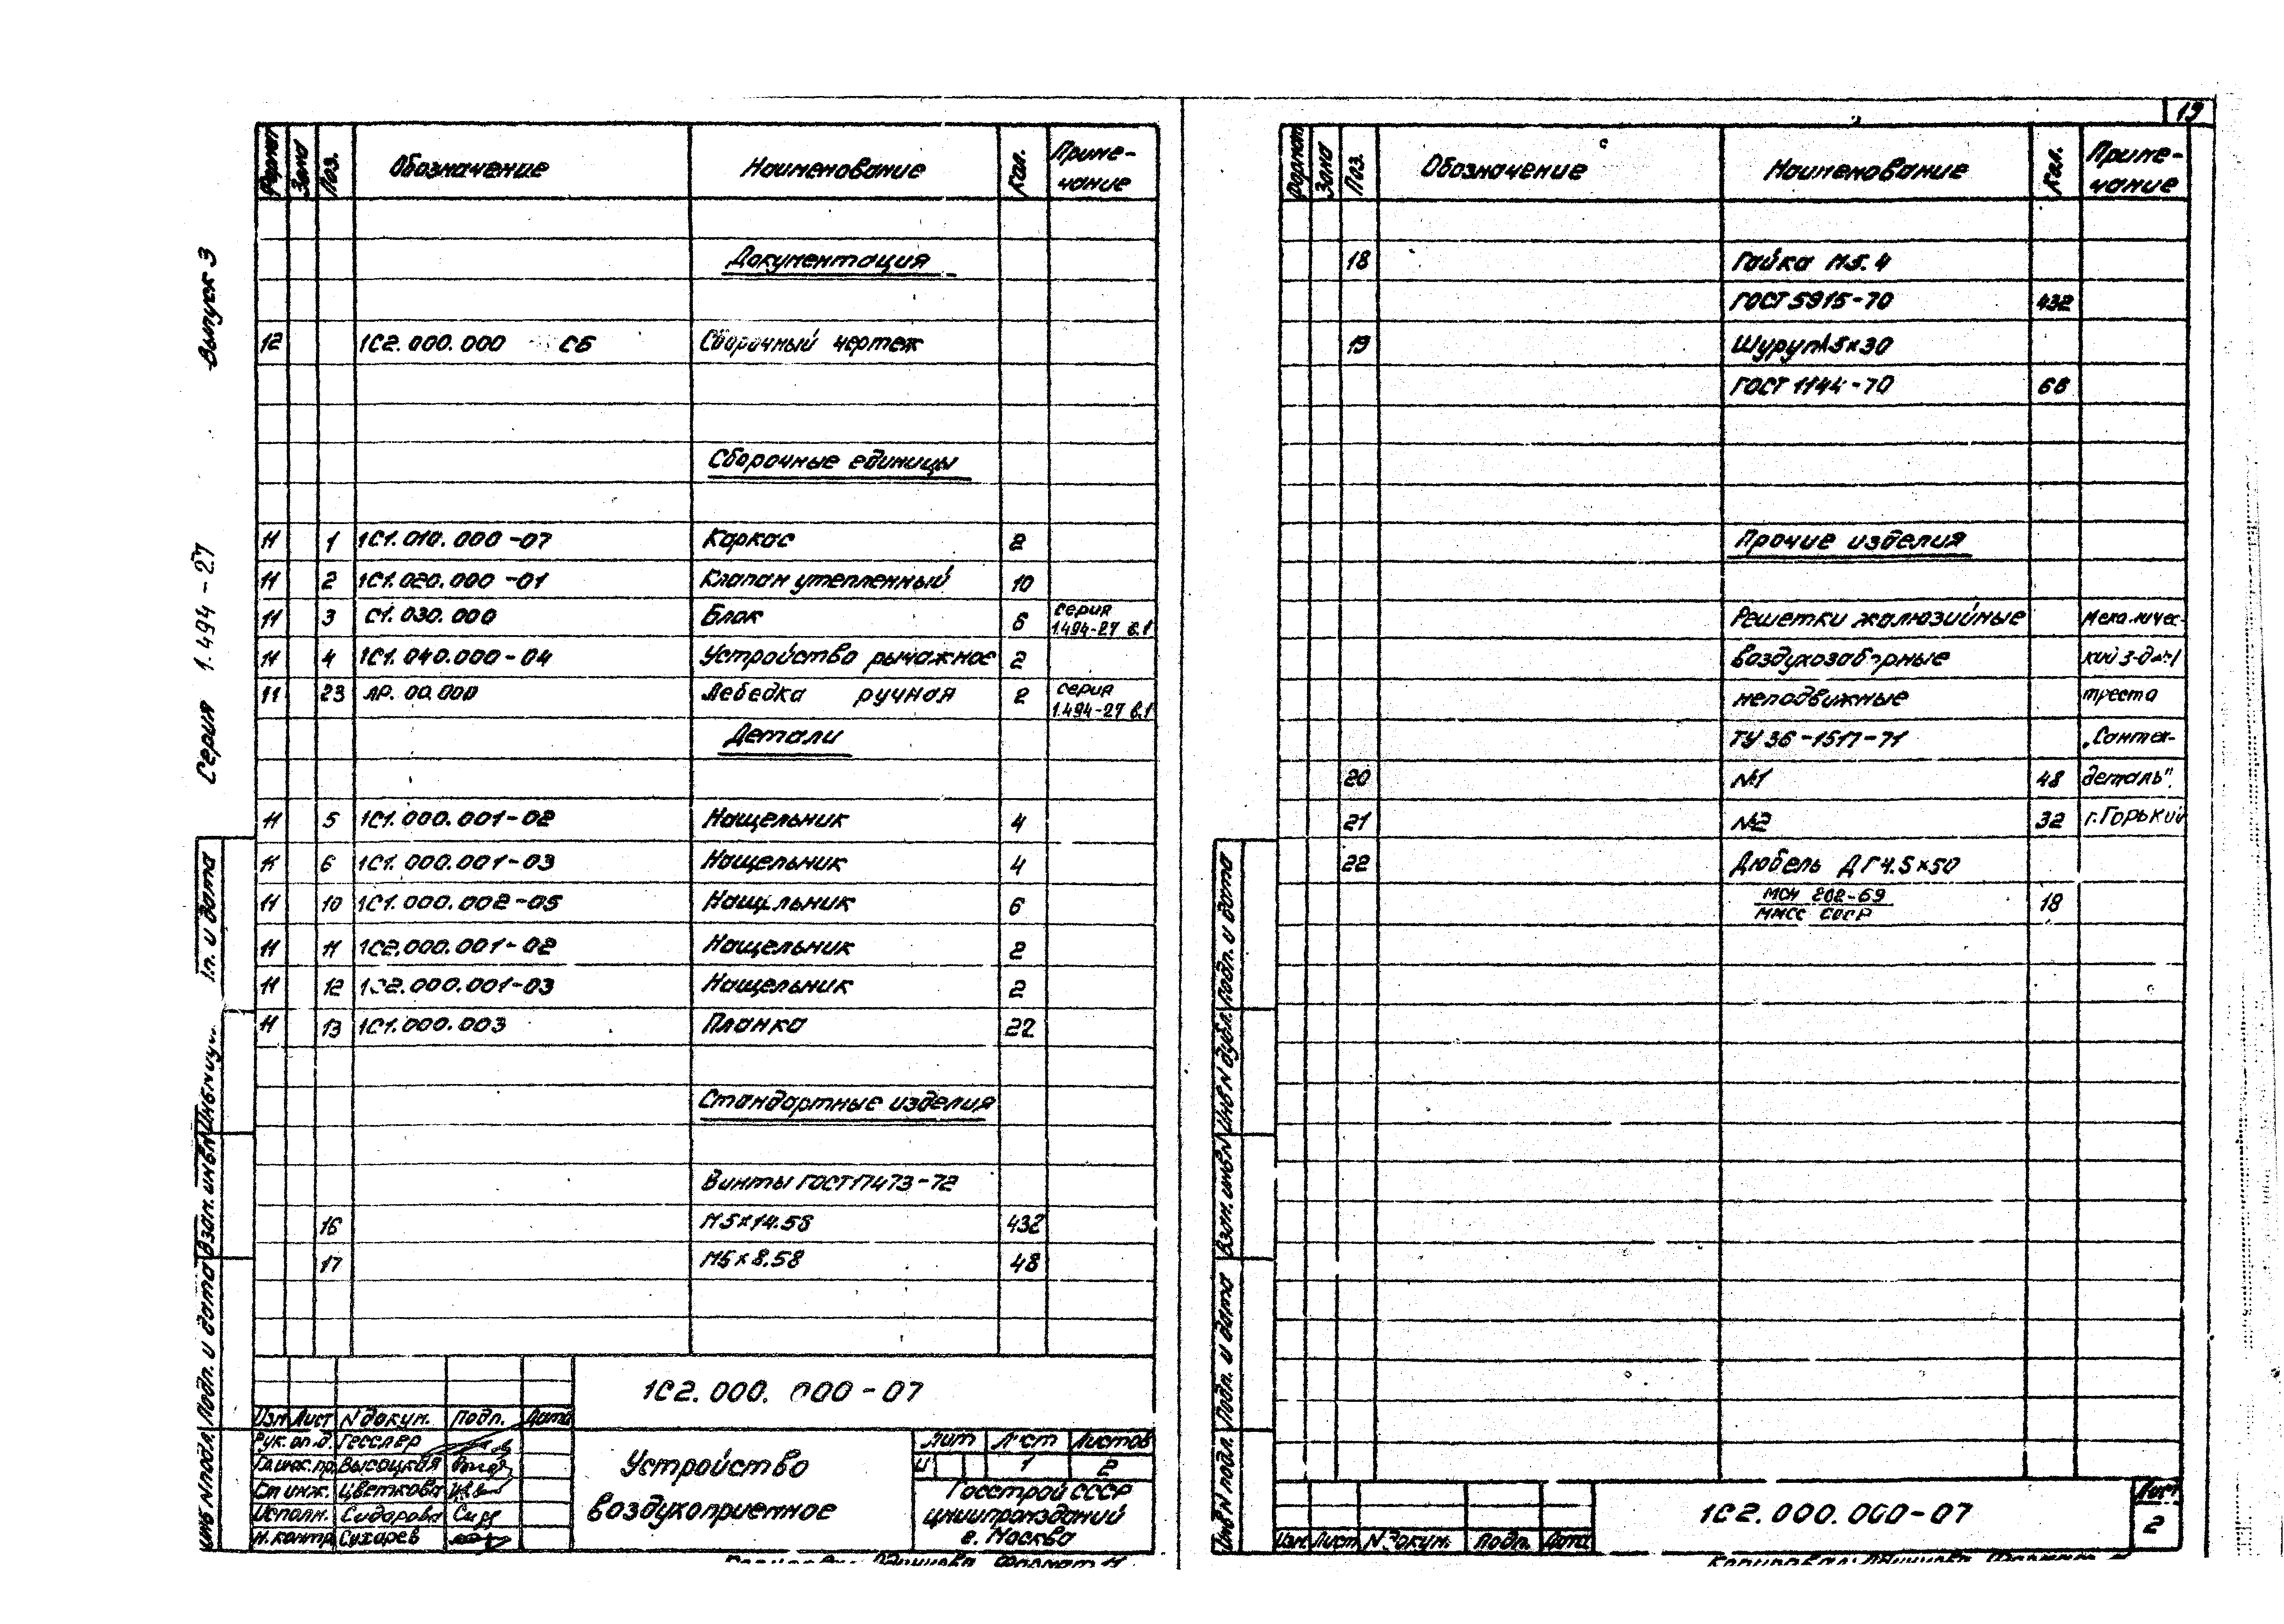 19
Выпуск 3
Серия 1.494-27
Формат Зона Поз. Обозначение Наименование Кол. Приме-
чание
Документация
12 1С2.000.000 СБ Сборочный чертеж
Сборочные единицы
11 1 1С1.010.000-07 Каркас 2
11 2 1С1.020.000-01 Клапан утепленный 10
11 3 С1.030.000 Блок 6 серия 1.494-27 в.1
11 4 1С1.040.000-04 Устройство рычажное 2
11 23 ЛР.00.000 Лебедка ручная 2 серия 1.494-27 в.1
Детали
11 5 1С1.000.001-02 Нащельник 4
11 6 1С1.000.001-03 Нащельник 4
11 10 1С1.000.002-05 Нащельник 6
11 11 1С2.000.001-02 Нащельник 2
11 12 1С2.000.001-03 Нащельник 2
11 13 1С1.000.003 Планка 22
Стандартные изделия
Винты ГОСТ 17473-72
16 М5х14.58 432
17 М5х8.58 48
1С2.000.000-07
Изм Лист N докум. Подп. Дата
Рук. отд. Гесслер
Гл.инж.пр. Высоцкая
Ст инж. Цветкова
Исполн. Сидарова
Н.контр Сухарев
Устройство
воздухоприемное
Лит Лист Листов
И 1 2
Госстрой СССР
ЦНИИпромзданий
г. Москва
Инв N подл. Подп. и дата Взам. инв N
Формат Зона Поз. Обозначение Наименование Кол. Приме-
чание
18 Гайка М5.4
ГОСТ 5915-70 432
19 Шуруп А5х30
ГОСТ 1144-70 66
Прочие изделия
Решетки жалюзийные Механичес-
воздухозаборные кий з-д №1
неподвижные треста
ТУ 36-1517-71 „Сантех-
20 №1 48 деталь"
21 №2 32 г.Горький
22 Дюбель ДГ 4.5х50
МСН 202-69
ММСС СССР 18
Инв N подл. Подп. и дата Взам. инв N Инв N дубл. Подп. и дата
Изм Лист N докум. Подп. Дата
1С2.000.000-07
Лист
2